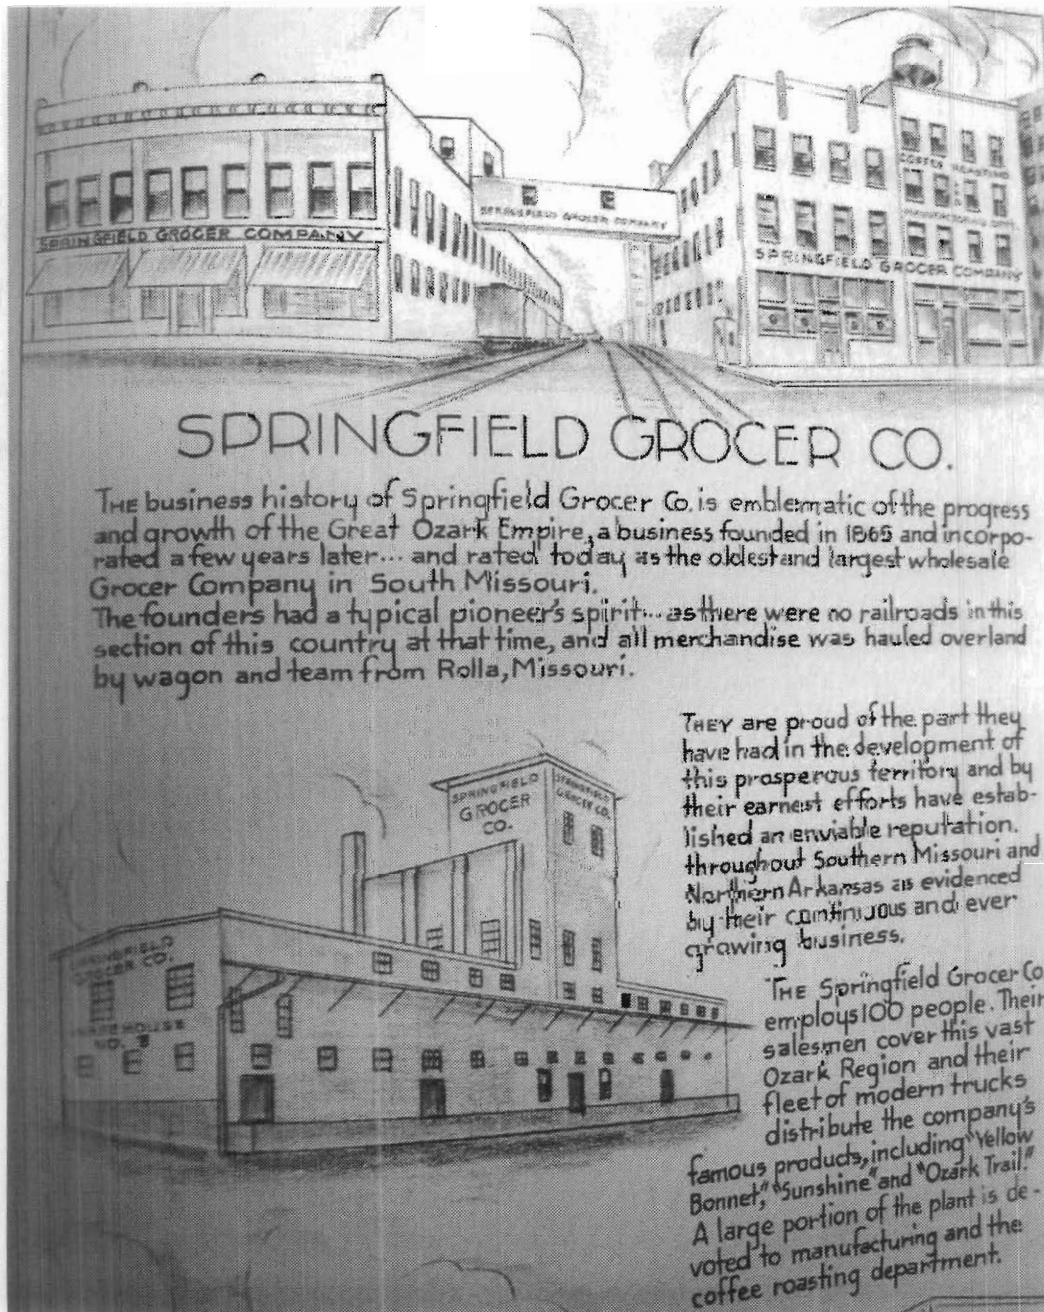 SPRINGFIELD GROCER COMPANY
SPRINGFIELD GROCER COMPANY
COFFEE ROASTING
AND
MANUFACTURING DEPT.
SPRINGFIELD GROCER COMPANY
SPRINGFIELD GROCER CO.
THE business history of Springfield Grocer Co. is emblematic of the progress
and growth of the Great Ozark Empire, a business founded in 1865 and incorpo-
rated a few years later... and rated today as the oldest and largest wholesale
Grocer Company in South Missouri.
The founders had a typical pioneer's spirit... as there were no railroads in this
section of this country at that time, and all merchandise was hauled overland
by wagon and team from Rolla, Missouri.
SPRINGFIELD
GROCER
CO.
SPRINGFIELD
GROCER CO.
SPRINGFIELD
GROCER CO.
WAREHOUSE
NO.
THEY are proud of the part they
have had in the development of
this prosperous territory and by
their earnest efforts have estab-
lished an enviable reputation.
throughout Southern Missouri and
Northern Arkansas as evidenced
by their continuous and ever
growing business.
THE Springfield Grocer Co
employs 100 people. Their
salesmen cover this vast
Ozark Region and their
fleet of modern trucks
distribute the company's
famous products, including "Yellow
Bonnet," "Sunshine" and "Ozark Trail."
A large portion of the plant is de-
voted to manufacturing and the
coffee roasting department.